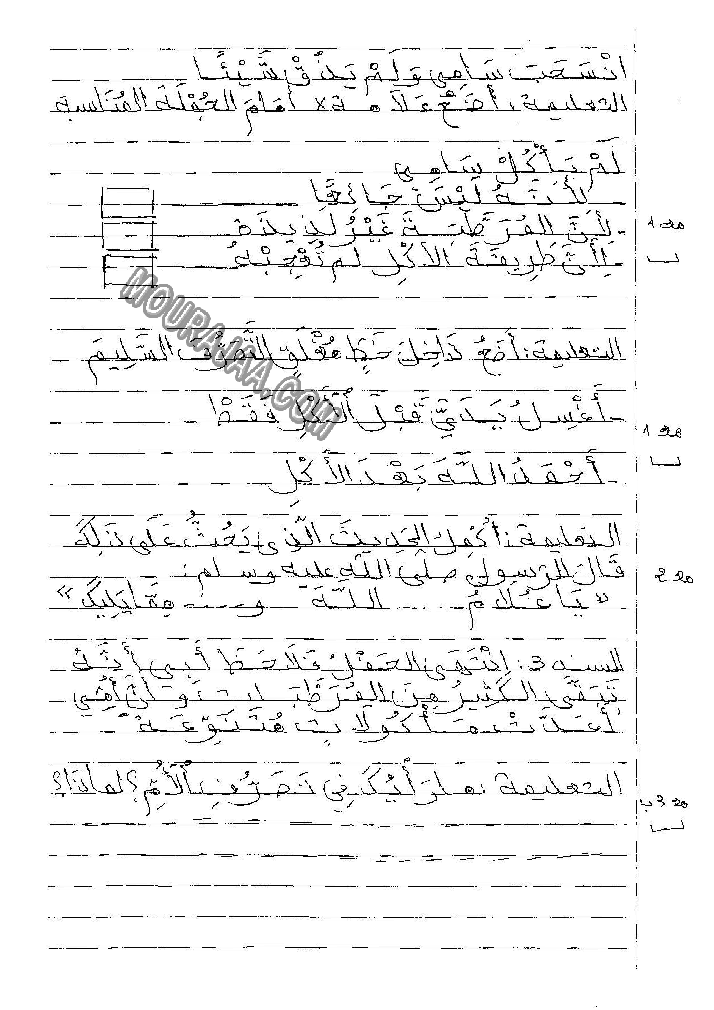 انْسَحَبَ سَامِي وَلَمْ يَذُقْ شَيْئًا
التعليمة: أضَعُ عَلاَمة x أمَامَ الجُمْلَةِ المُنَاسبة
لَمْ يَأْكُلْ سَامِي
لأنَّهُ لَيْسَ جَائِعًا
- لِأَنَّ المُرَطِّبَةَ غَيْرُ لَذِيذَة
- لِأَنَّ طَرِيقَةَ الأكْلِ لم تُعْجِبْهُ
مع1 أ
التعليمة: أضَعُ دَاخِلَ خَطٍّ مُغْلَقٍ التَّصَرُّفَ السَّلِيمَ
- أَغْسِلُ يَدَيَّ قَبْلَ الأَكْلِ فَقَطْ
مع1 أ
- أَحْمَدُ اللَّهَ بَعْدَ الأَكْلِ
التعليمة: أكْمِلُ الحَدِيثَ الَّذِي يَحُثُّ عَلَى ذَلِكَ
قَالَ الرَسُولُ صلى اللَّهُ عليه وسلم:
مع2
«يَا غُلاَمُ ..... اللَّهَ و..... مِمَّا يَلِيكَ»
السند 3: انْتَهَى الحَفْلُ فَلاَحَظَ أَبِي أنَّهُ
تَبَقَّى الكَثِيرُ مِنَ المُرَطِّبَاتِ وَأنَّ أُمِّي
أعَدَّتْ مَأْكُولاَتٍ مُتَنَوِّعَةً
التعليمة: ما رَأْيُكَ فِي تَصَرُّفِ الأُمِّ؟ لماذا؟
مع3 ب
MOURAJAA.COM